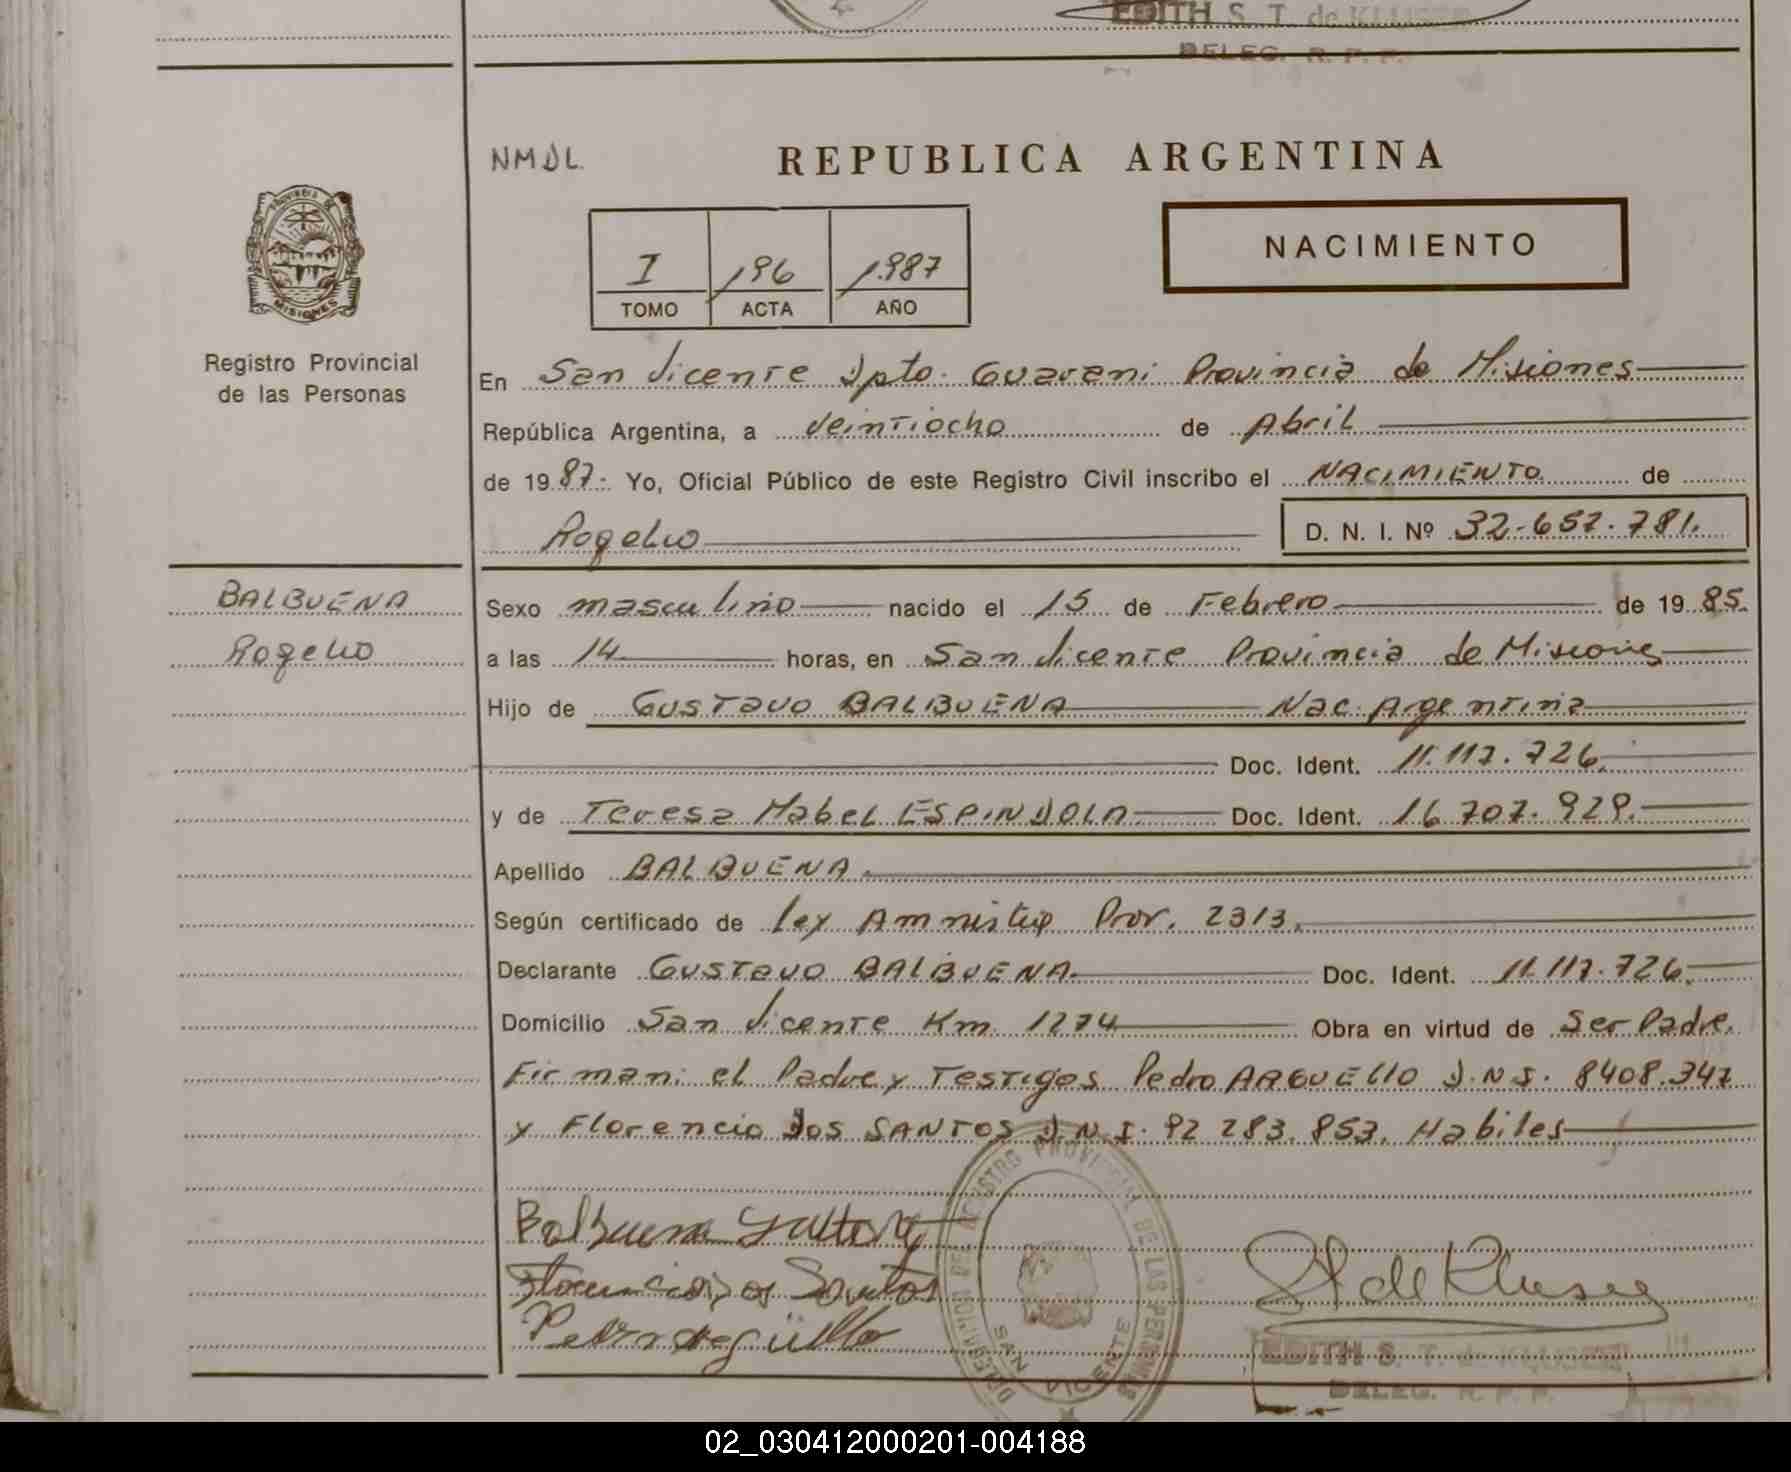 EDITH S. T. de KLUSER
DELEG. R. P. P.
NMDL.
REPUBLICA ARGENTINA
PROVINCIA DE
MISIONES
I 196 1987
TOMO ACTA AÑO
NACIMIENTO
Registro Provincial
de las Personas
En San Vicente Dpto. Guarani Provincia de Misiones
República Argentina, a Veintiocho de Abril
de 1987. Yo, Oficial Público de este Registro Civil inscribo el NACIMIENTO de
Rogelio D. N. I. Nº 32.657.781.
BALBUENA
Rogelio
Sexo masculino nacido el 15 de Febrero de 1985.
a las 14 horas, en San Vicente Provincia de Misiones
Hijo de GUSTAVO BALBUENA Nac. Argentina
Doc. Ident. 11.117.726.
y de Teresa Mabel ESPINDOLA Doc. Ident. 16.707.929.
Apellido BALBUENA.
Según certificado de Ley Amnistia Prov. 2313.
Declarante GUSTAVO BALBUENA. Doc. Ident. 11.117.726.
Domicilio San Vicente Km. 1274 Obra en virtud de Ser Padre.
Firman: el Padre y Testigos Pedro ARGUELLO D.N.I. 8408.347
y Florencio DOS SANTOS D.N.I. 92.283.853. Habiles
Balbuena Gustavo
Florencio Dos Santos
Pedro Argüello
DELEGACION DEL REGISTRO PROVINCIAL DE LAS PERSONAS
SAN VICENTE
ST de Kluser
EDITH S. T. de KLUSER
DELEG. R. P. P.
02_030412000201-004188